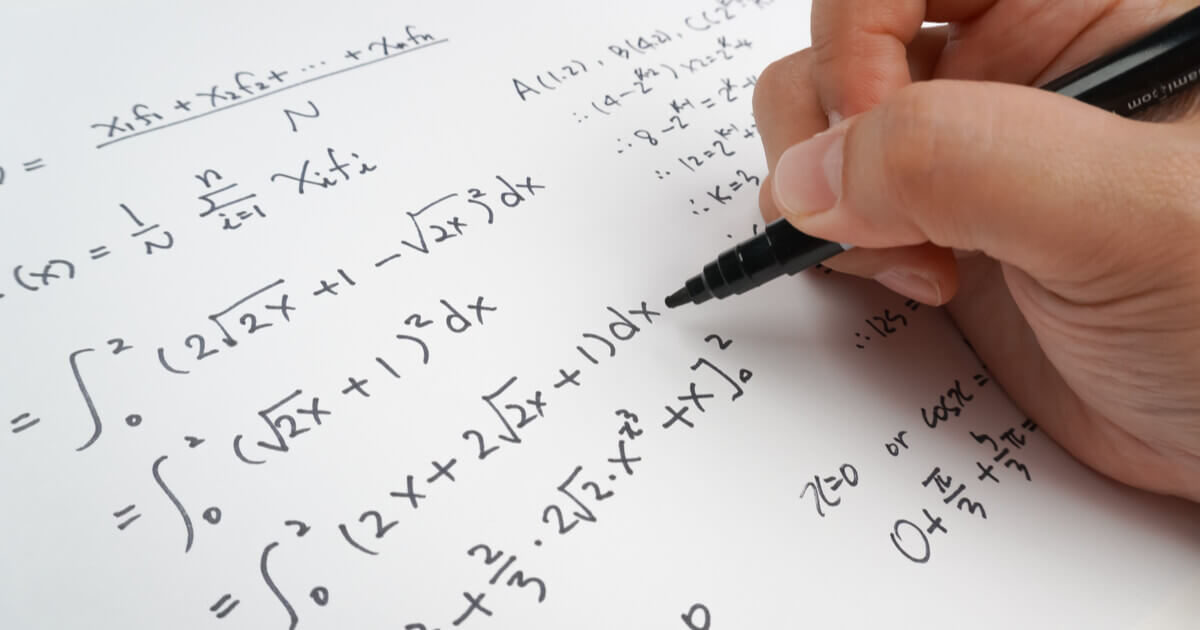 = (x₁f₁ + x₂f₂ + ... + xₙfₙ) / N
(x) = 1/N ∑ⁿᵢ₌₁ xᵢfᵢ
= ∫₀² (2√2x + 1 - √2x)² dx
= ∫₀² (√2x + 1)² dx
= ∫₀² (2x + 2√2x + 1) dx
+ 2/3 · 2√2 · x + x]₀²
A(1,2), B(4,2), C(2
∴ (4 - 2
∴ 8 - 2ᵏ⁻¹ = 2ᵏ
∴ 12 = 2ᵏ⁻¹ +
∴ k = 3
∴ 125 =
x=0 or cosx =
0 + π/3 + 5/3 π =